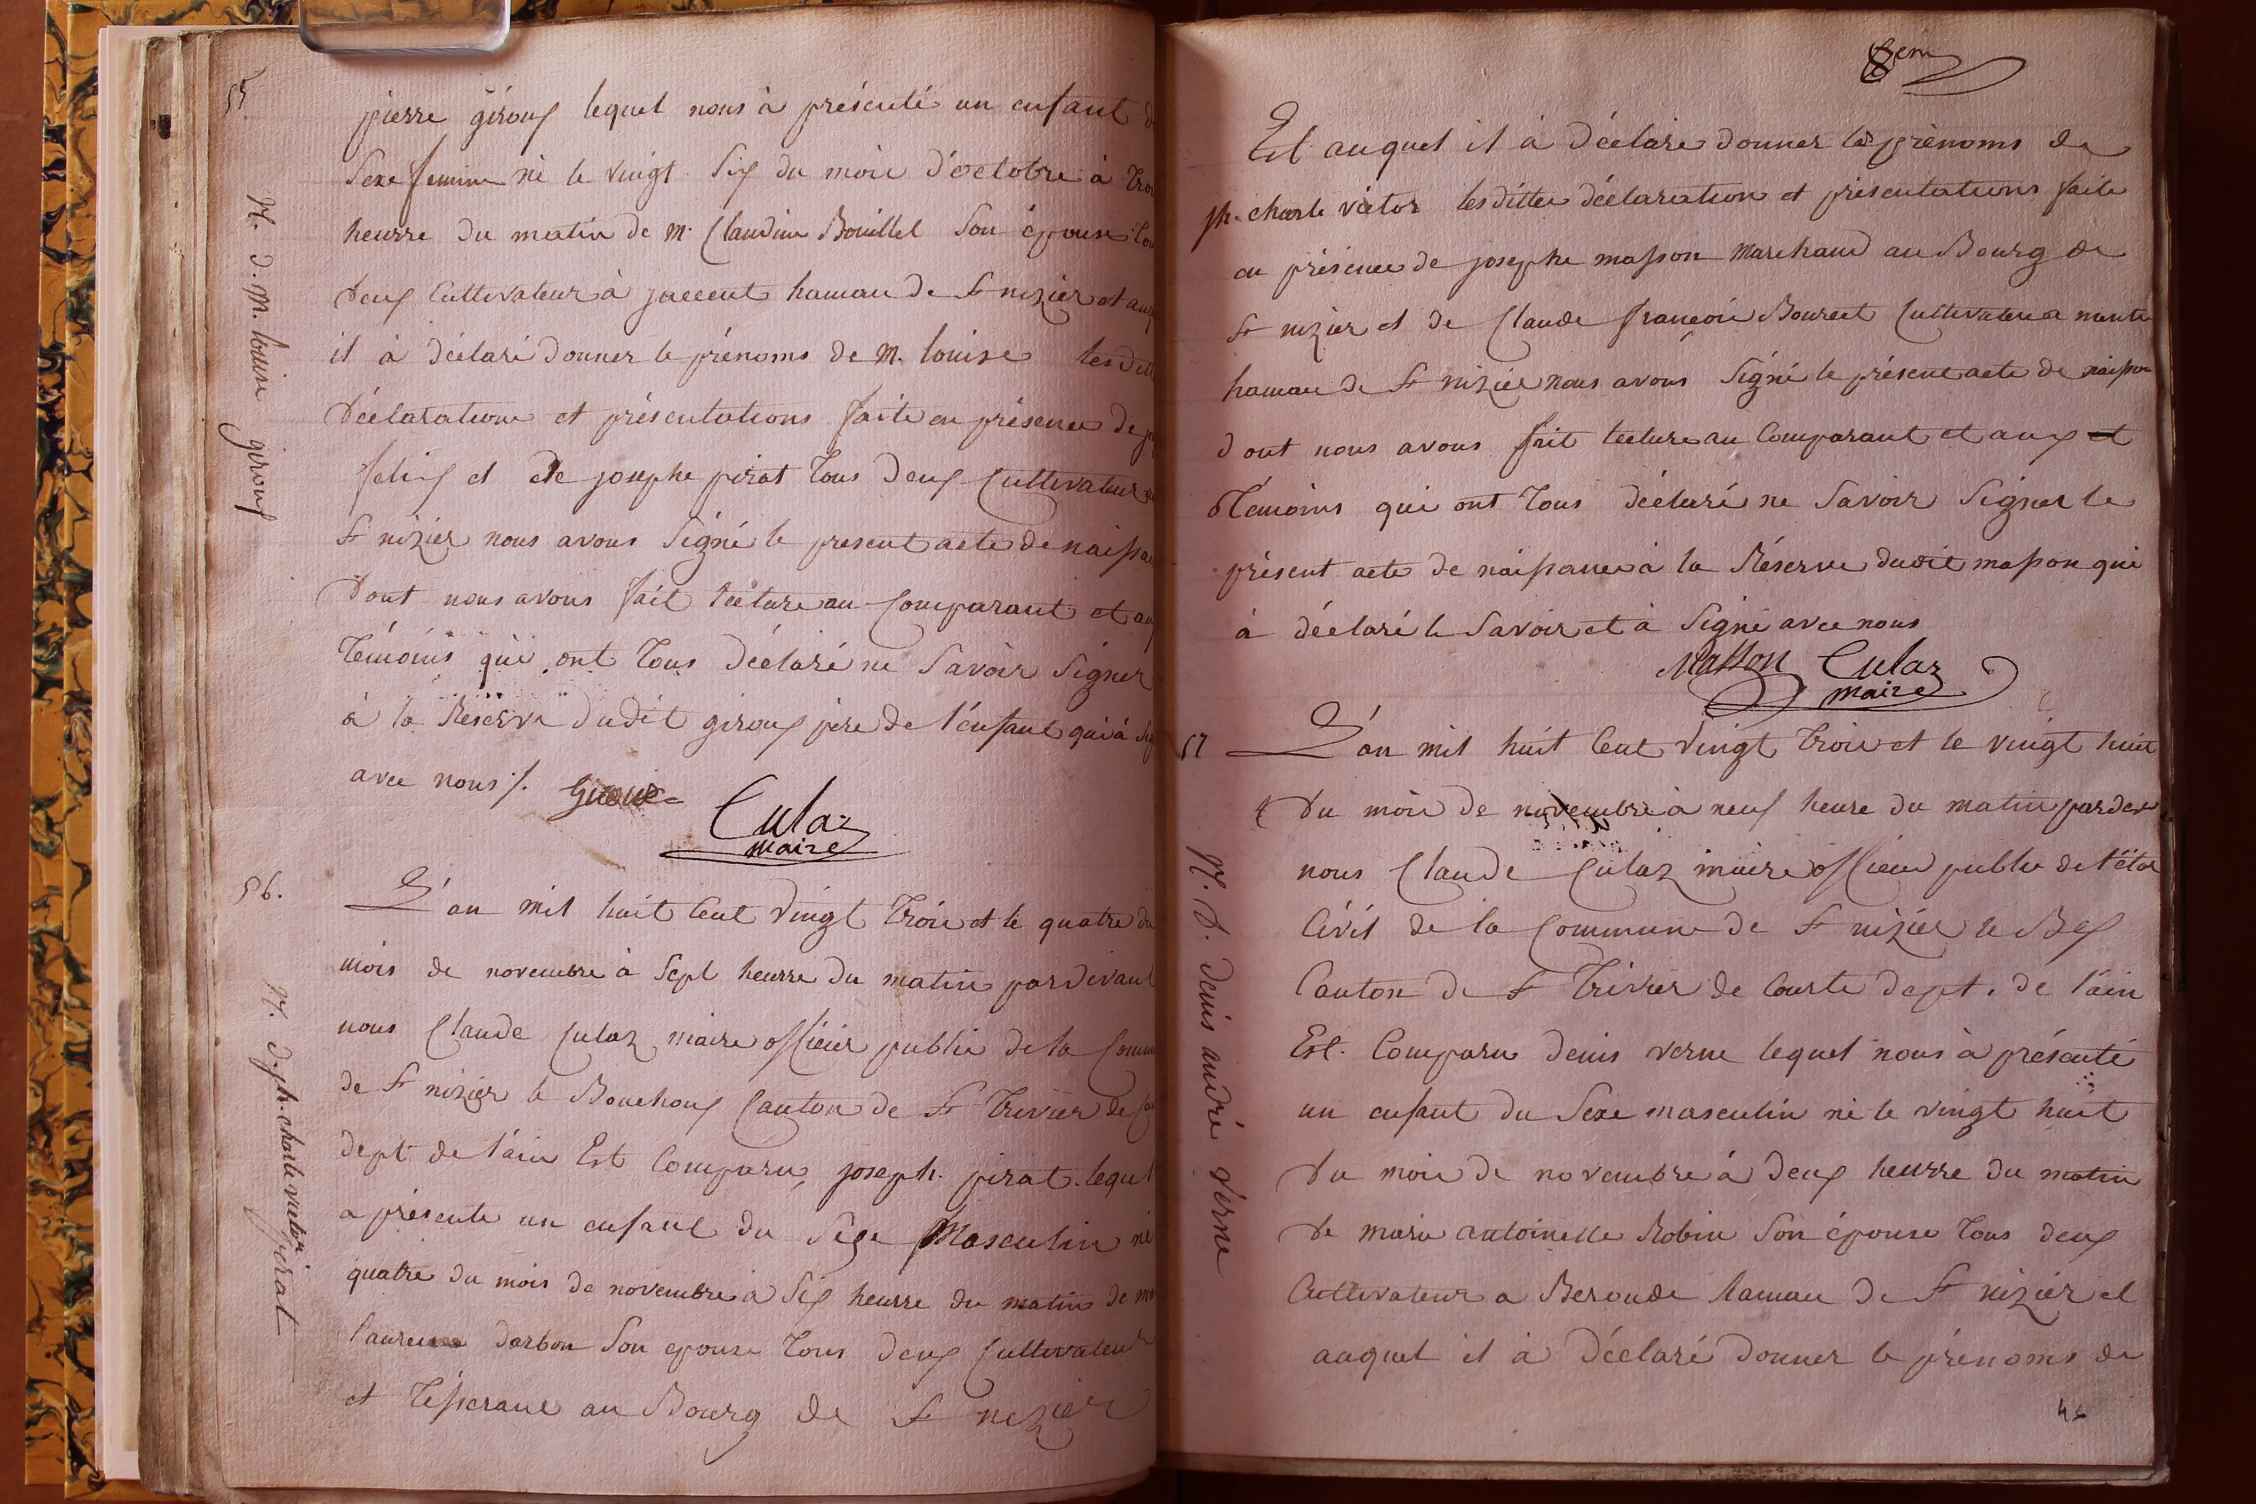 55.
pierre giroux lequel nous à présenté un enfant d
Sexe feminin né le vingt Six du mois d'octobre à Troi
heurre du matin de M. Claudine Bouillet Son épouse tou
Deux Cultivateur à jaccent hamau de St nizier et auq
il à déclaré donner le prénoms de M. louise les ditte
Déclarations et présentations faite en présence de
felix et de josephe pirat Tous Deux Cultivateur
St nizier nous avons Signé le present acte de naissa
Dont nous avons fait lecture au Comparant et au
Témoins qui ont Tous Déclaré ne Savoir Signer
à la Reserve Dudit giroux père de l'enfant qui à Sig
avec nous /. Giroux
Culaz
maire
N. d. M. louise giroux
56.
L'an mil huit Cent Vingt Trois et le quatre du
mois de novembre à Sept heurre du matin pardevant
nous Claude Culaz maire officier public de la Comm
de St nizier le Bouchoux Canton de St Trivier de Co
dept de l'ain Est Comparu joseph pirat lequel
a présenté un enfant du Sexe Masculin né
quatre du mois de novembre à Six heurre du matin de m
laurence darbon Son epouse Tous deux Cultivateur
et Tisserane au Bourg de St nizier
N. d. jph. charle victor pirat
8em
Est auquel il à Déclaré donner les prénoms de
jph. charle victor lesdittes déclaration et présentations faite
en présence de josephe masson Marchand au Bourg de
St nizier et de Claude françois Bourcet Cultivateur a
hamau de St nizier nous avons Signé le présent acte de naissan
dont nous avons fait lecture au Comparant et aux et
Témoins qui ont Tous déclaré ne Savoir Signer le
présent acte de naissance à la Réserve dudit masson qui
à déclaré le Savoir et à Signé avec nous
Masson Culaz
maire
57
L'an mil huit Cent Vingt Trois et le vingt huit
Du mois de novembre à neuf heure du matin pardev
nous Claude Culaz maire officier public de l'état
Civil de la Commune de St nizier le Bex
Canton de St Trivier de Courte dept. de l'ain
Est. Comparu denis verne lequel nous à présenté
un enfant du Sexe masculin né le vingt huit
Du mois de novembre à deux heurre du matin
De marie antoinette Robin Son épouse Tous deux
Cultivateur a Beroude hamau de St nizier et
auquel il à Déclaré donner le prénoms de
N. D. denis andré verne